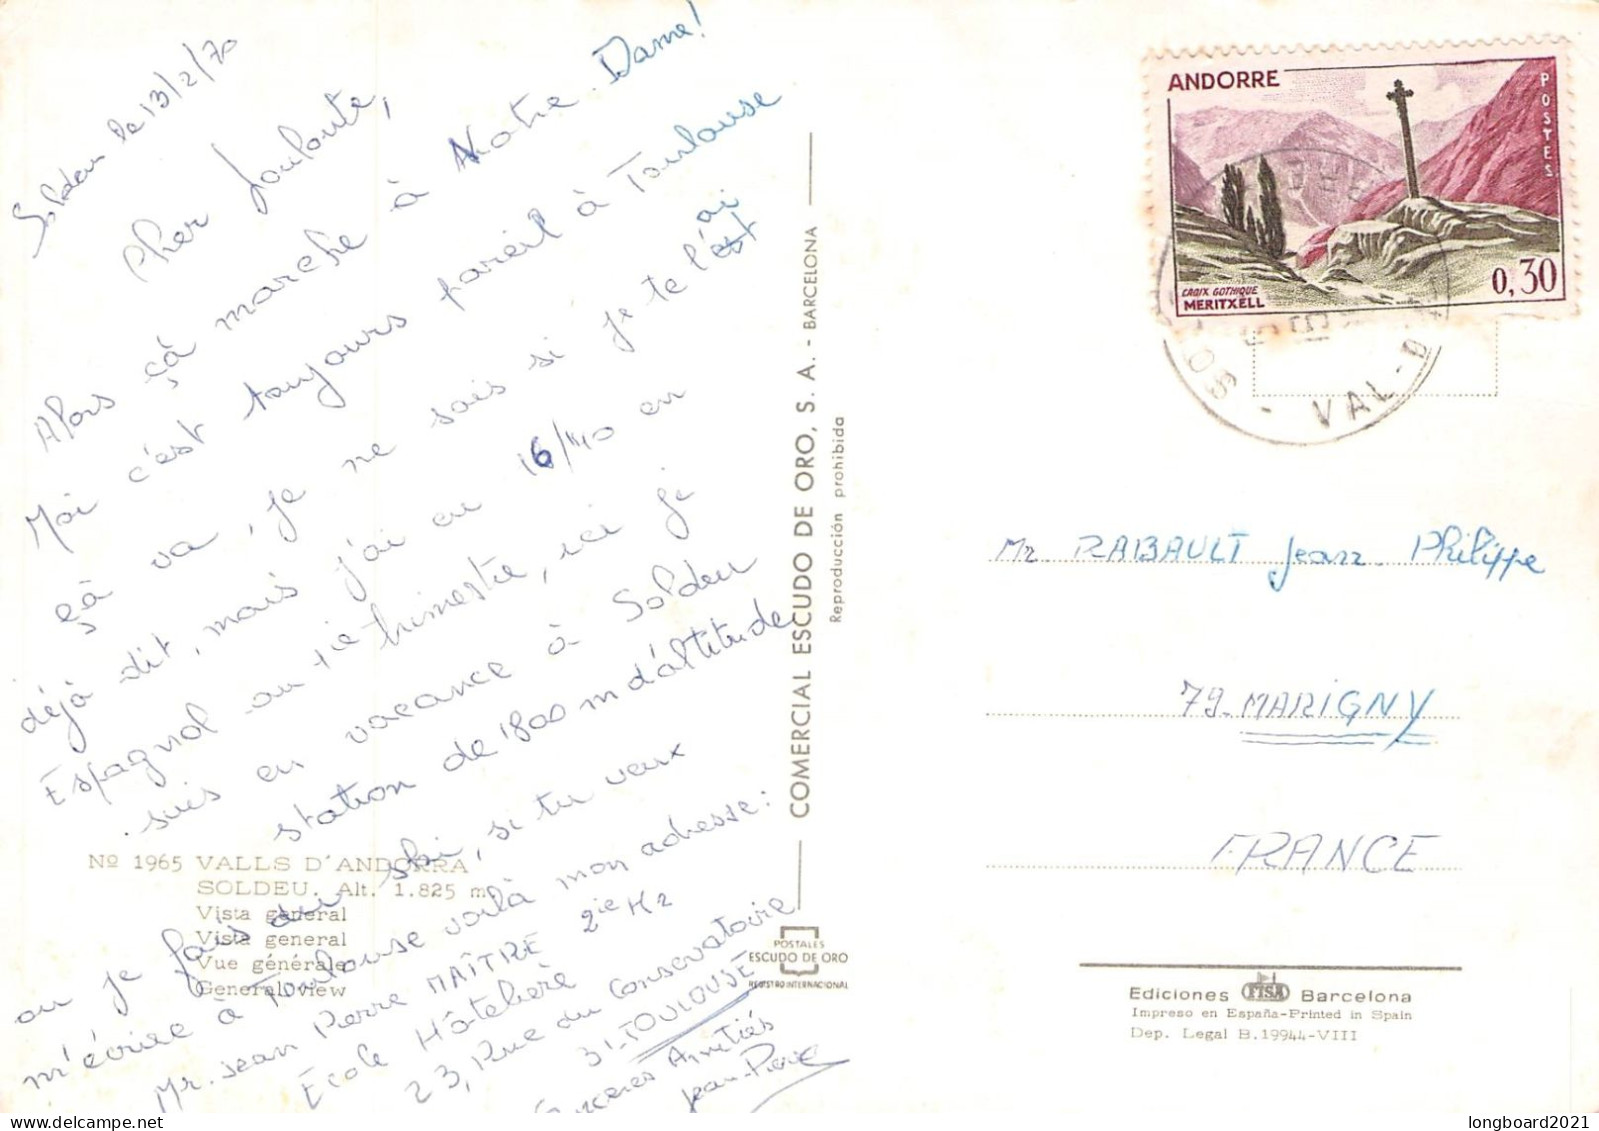 Soldeu le 13/2/70
Cher Louloute,
Alors çà marche à Notre-Dame!
Moi c'est toujours pareil à Toulouse
çà va, je ne sais si je te l'ai
déjà dit, mais j'ai eu 16/20 en
Espagnol au 1ie trimestre, ici je
suis en vacance à Soldeu
station de 1800 m d'altitude
ou je fais du ski, si tu veux
m'écrire à Toulouse voilà mon adresse:
Mr. Jean Pierre MAÎTRE 2ie H2
École Hôtelière
23, Rue du Conservatoire
31-TOULOUSE
Sincères Amitiés
Jean-Pierre
Nº 1965 VALLS D'ANDORRA
SOLDEU. Alt. 1.825 m
Vista general
Vista general
Vue générale
General view
COMERCIAL ESCUDO DE ORO, S. A. - BARCELONA
Reproducción prohibida
POSTALES
ESCUDO DE ORO
REGISTRO INTERNACIONAL
ANDORRE
POSTES
CROIX GOTHIQUE
MERITXELL
0,30
VAL-D
Mr RABAULT Jean Philippe
79-MARIGNY
FRANCE
Ediciones FISA Barcelona
Impreso en España-Printed in Spain
Dep. Legal B.19944-VIII
longboard2021